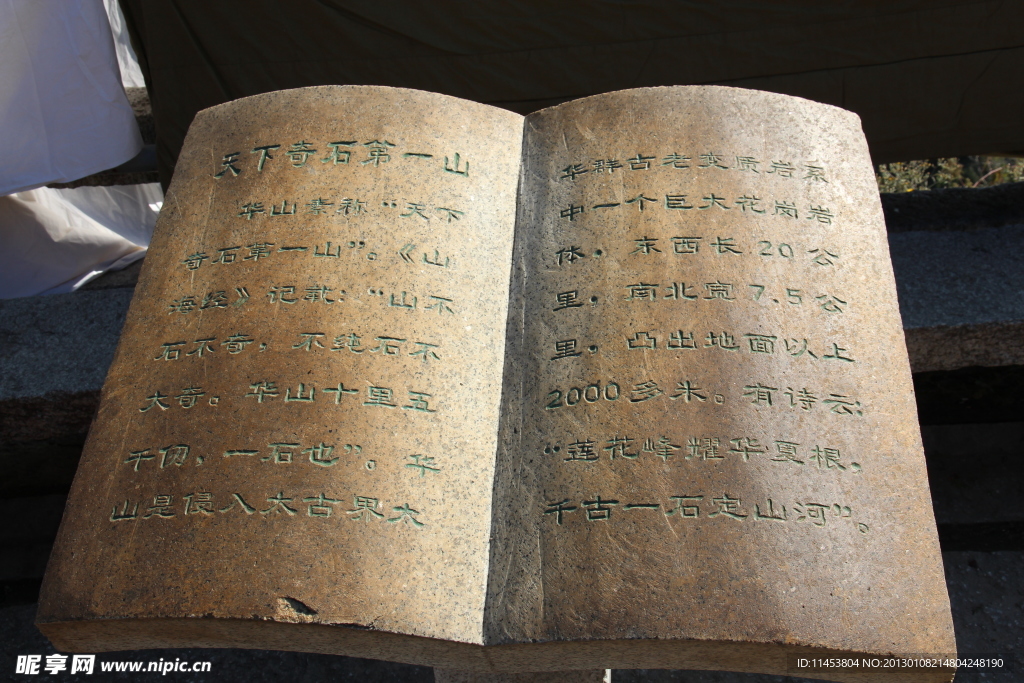 天下奇石第一山
华山素称“天下
奇石第一山”。《山
海经》记载：“山不
石不奇，不纯石不
大奇。华山十里五
千仞，一石也”。华
山是侵入太古界太
华群古老变质岩系
中一个巨大花岗岩
体，东西长20公
里，南北宽7.5公
里，凸出地面以上
2000多米。有诗云：
“莲花峰耀华夏根，
千古一石定山河”。
昵享网 www.nipic.cn
ID:11453804 NO:20130108214804248190